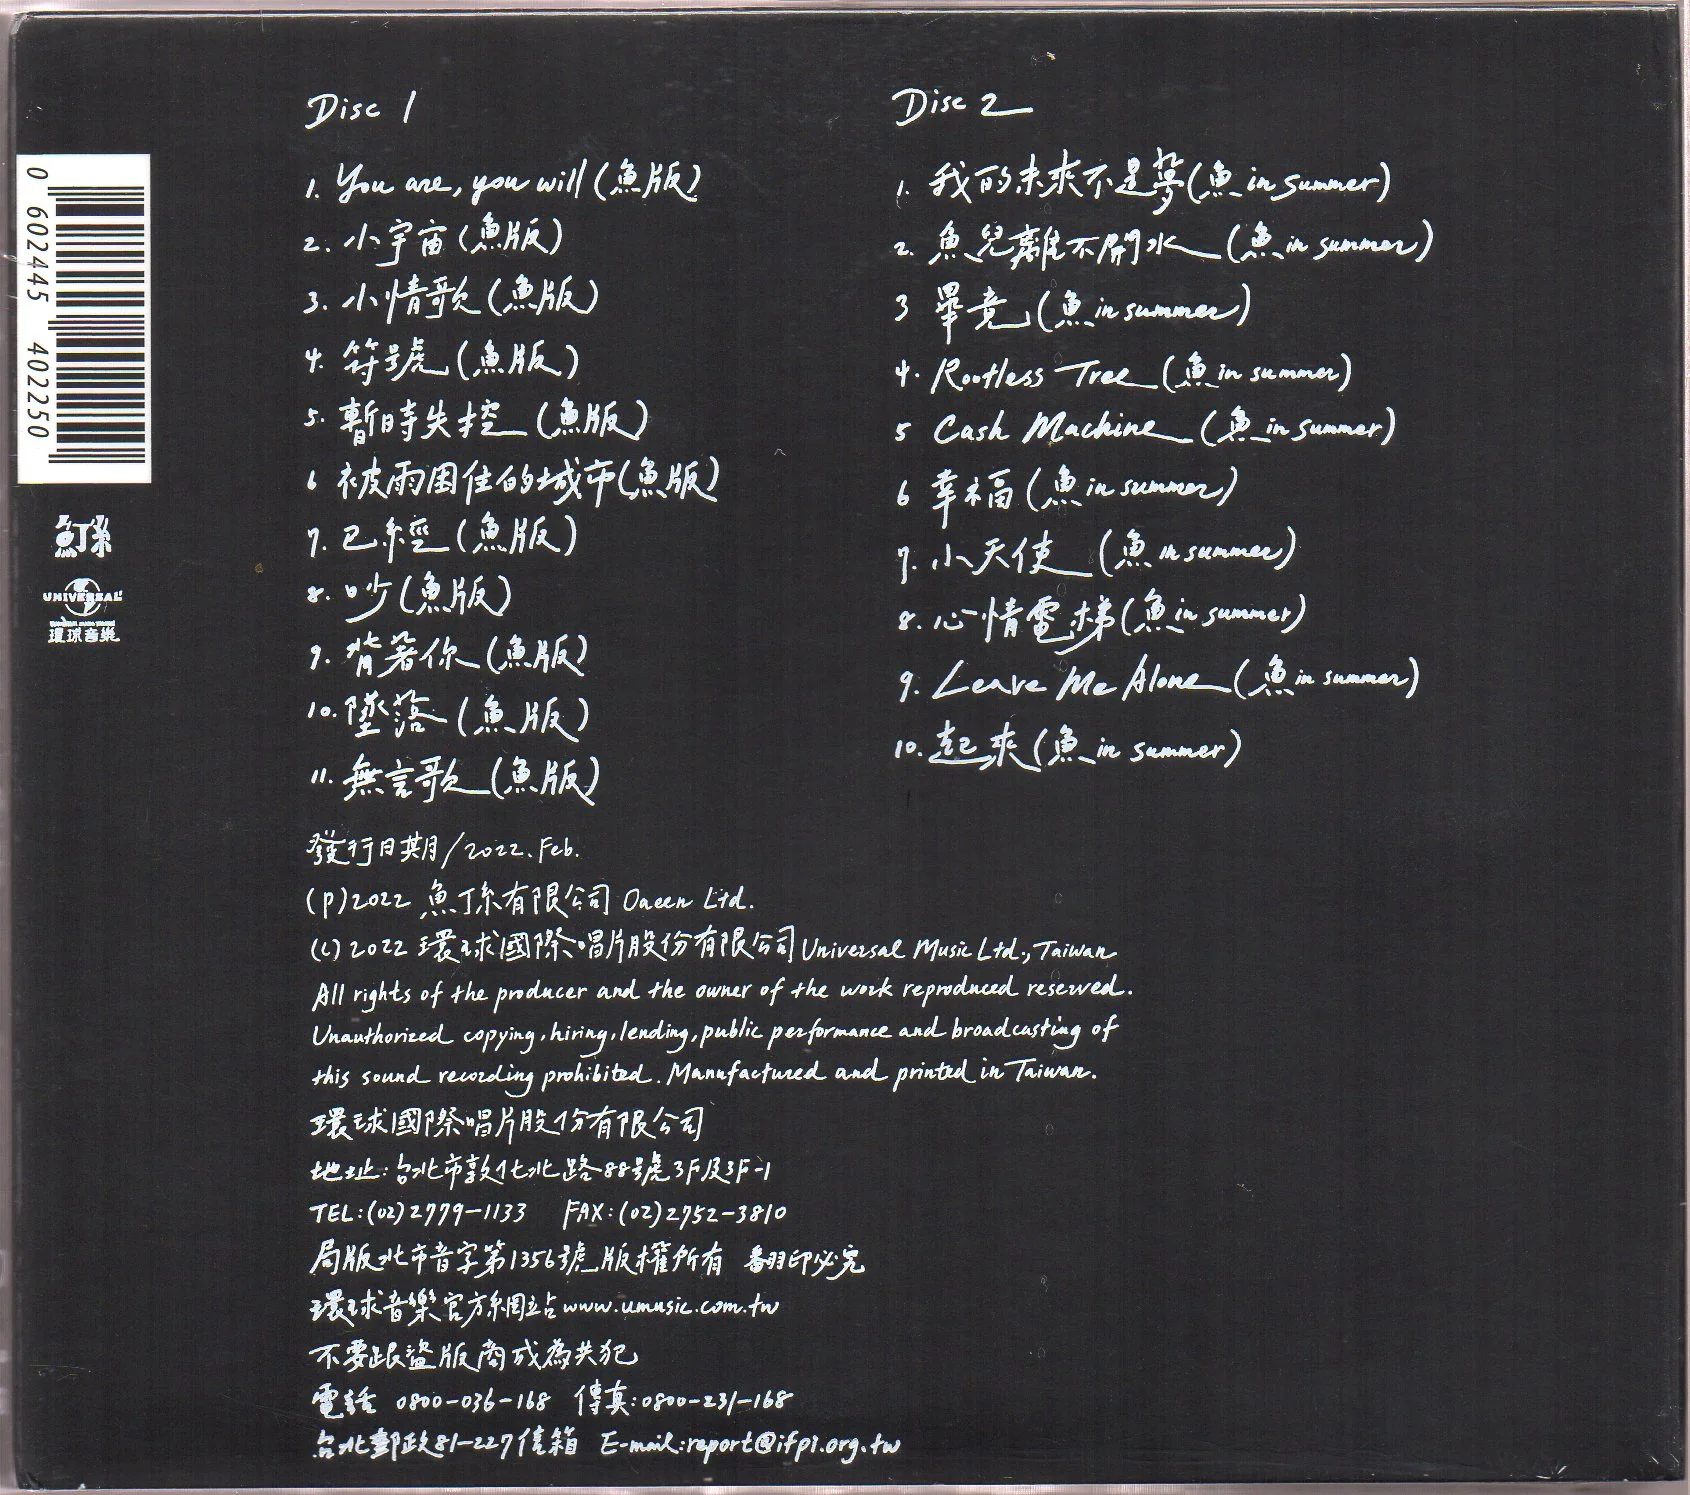 Disc 1
1. You are, you will (魚版)
2. 小宇宙 (魚版)
3. 小情歌 (魚版)
4. 符號 (魚版)
5. 暫時失控 (魚版)
6 被雨困住的城市 (魚版)
7. 已經 (魚版)
8. 吵 (魚版)
9. 背著你 (魚版)
10. 墜落 (魚版)
11. 無言歌 (魚版)
Disc 2
1. 我的未來不是夢 (魚 in summer)
2. 魚兒離不開水 (魚 in summer)
3 畢竟 (魚 in summer)
4. Rootless Tree (魚 in summer)
5 Cash Machine (魚 in summer)
6 幸福 (魚 in summer)
7. 小天使 (魚 in summer)
8. 心情電梯 (魚 in summer)
9. Leave Me Alone (魚 in summer)
10. 起來 (魚 in summer)
發行日期/2022. Feb.
(P)2022 魚丁糸有限公司 Oaeen Ltd.
(C) 2022 環球國際唱片股份有限公司 Universal Music Ltd., Taiwan
All rights of the producer and the owner of the work reproduced reserved.
Unauthorized copying, hiring, lending, public performance and broadcasting of
this sound recording prohibited. Manufactured and printed in Taiwan.
環球國際唱片股份有限公司
地址:台北市敦化北路88號3F及3F-1
TEL:(02)2779-1133 FAX:(02)2752-3810
局版北市音字第1356號 版權所有 翻印必究
環球音樂官方網站 www.umusic.com.tw
不要跟盜版商成為共犯
電話 0800-036-168 傳真:0800-231-168
台北郵政81-227信箱 E-mail:report@ifpi.org.tw
0 602445 402250
魚丁糸
UNIVERSAL
環球音樂